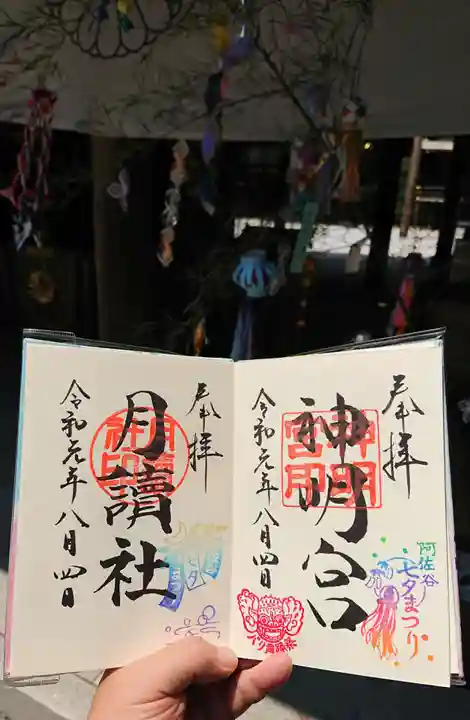 奉拝
神明宮
神明宮印
令和元年八月四日
阿佐谷
七夕まつり
奉拝
月讀社
月讀社印
令和元年八月四日